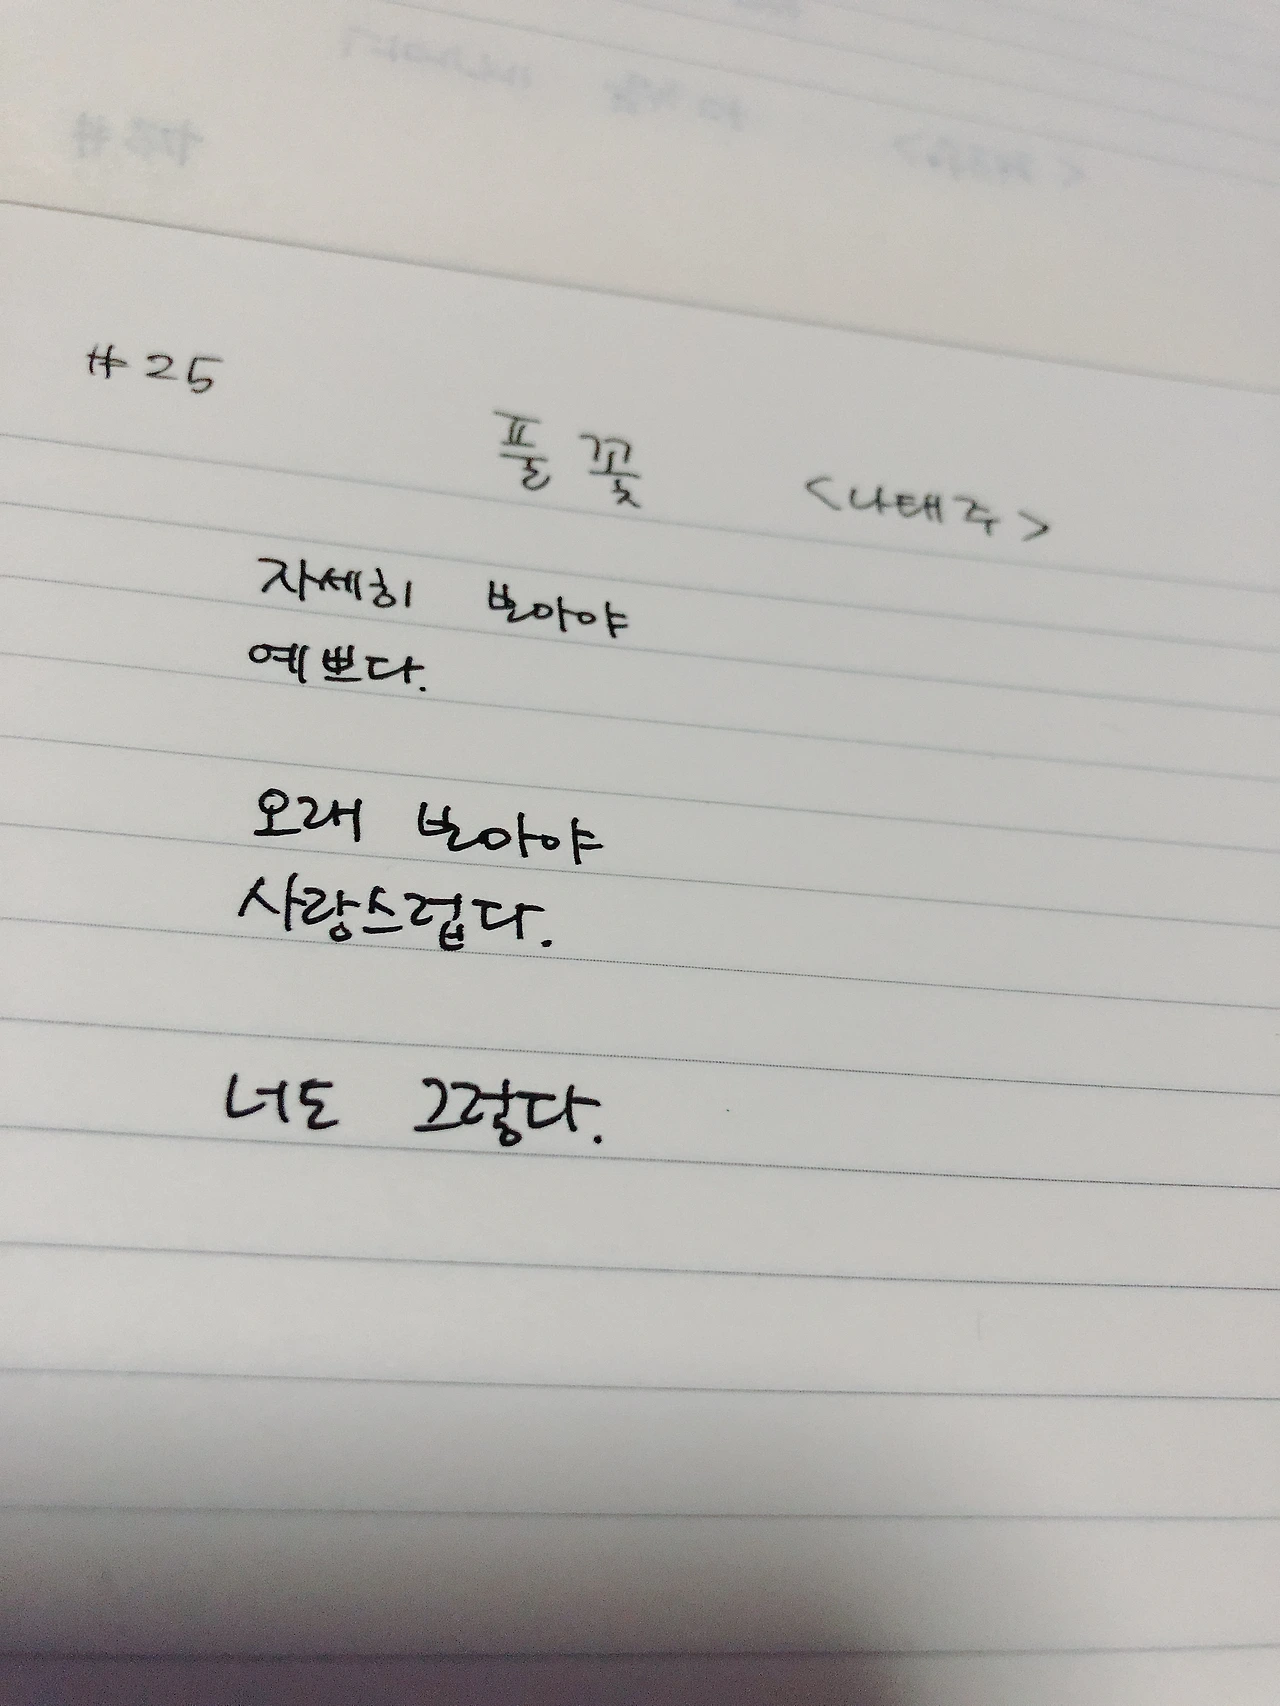 #25
풀꽃 <나태주>
자세히 보아야
예쁘다.
오래 보아야
사랑스럽다.
너도 그렇다.